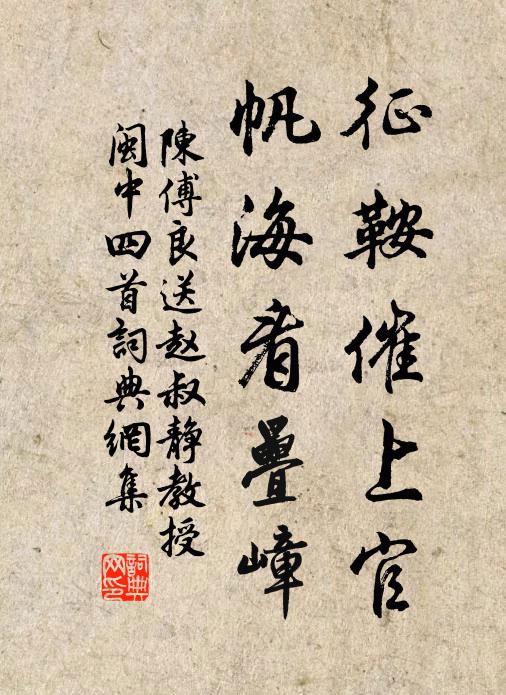 征鞍催上官
帆海看疊嶂
陳傅良送赵叔静教授
閩中四首詞典網集
詞典
网印